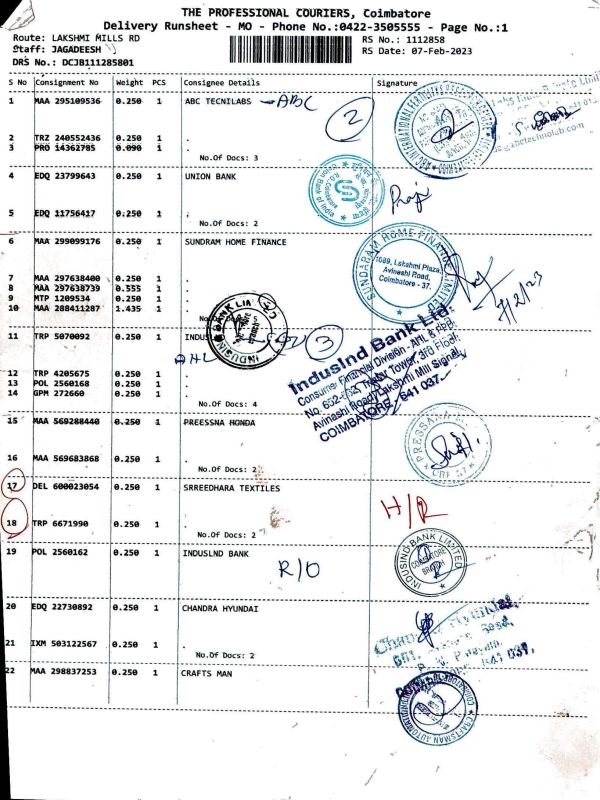 THE PROFESSIONAL COURIERS, Coimbatore
Delivery Runsheet - MO - Phone No.:0422-3505555 - Page No.:1
Route: LAKSHMI MILLS RD
RS No.: 1112858
Staff: JAGADEESH
RS Date: 07-Feb-2023
DRS No.: DCJB111285801
S No Consignment No Weight PCS Consignee Details Signature
1 MAA 295109536 0.250 1 ABC TECNILABS ABC
2
2 TRZ 240552436 0.250 1 .
3 PRO 14362785 0.090 1 .
No.Of Docs: 3
4 EDQ 23799643 0.250 1 UNION BANK
Union Bank of India
5 EDQ 11756417 0.250 1 .
No.Of Docs: 2
6 MAA 299099176 0.250 1 SUNDRAM HOME FINANCE
SUNDARAM HOME FINANCE LIMITED
1089, Lakshmi Plaza,
Avinashi Road,
Coimbatore - 37.
7 MAA 297638400 0.250 1 .
8 MAA 297638739 0.555 1 .
9 MTP 1209534 0.250 1 .
10 MAA 288411287 1.435 1 .
7/2/23
11 TRP 5070092 0.250 1 INDUS
3
IndusInd Bank Ltd.
Consumer Financial Division - AHL & 
Tower, 3rd Floor,
Avinashi Road, Lakshmi Mill Signal,
COIMBATORE - 641 037.
12 TRP 4205675 0.250 1 .
13 POL 2560168 0.250 1 .
14 GPM 272660 0.250 1 .
No.Of Docs: 4
15 MAA 569288440 0.250 1 PREESSNA HONDA
16 MAA 569683868 0.250 1 .
No.Of Docs: 2
17 DEL 600023054 0.250 1 SRREEDHARA TEXTILES
H/R
18 TRP 6671990 0.250 1 .
No.Of Docs: 2
19 POL 2560162 0.250 1 INDUSLND BANK
R/O
INDUSIND BANK LIMITED
COIMBATORE
BRANCH
20 EDQ 22730892 0.250 1 CHANDRA HYUNDAI
21 IXM 503122567 0.250 1 .
No.Of Docs: 2
22 MAA 298837253 0.250 1 CRAFTS MAN